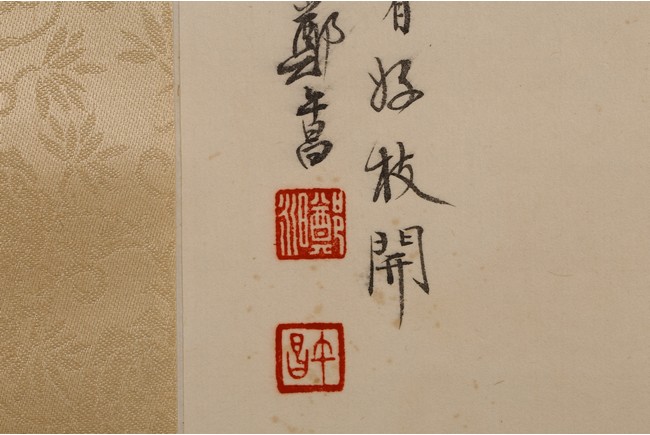 好枝開
鄭午昌
鄭昶
午昌